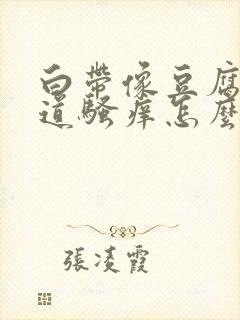 白帶像豆腐
道騷癢怎麼
張凌霞